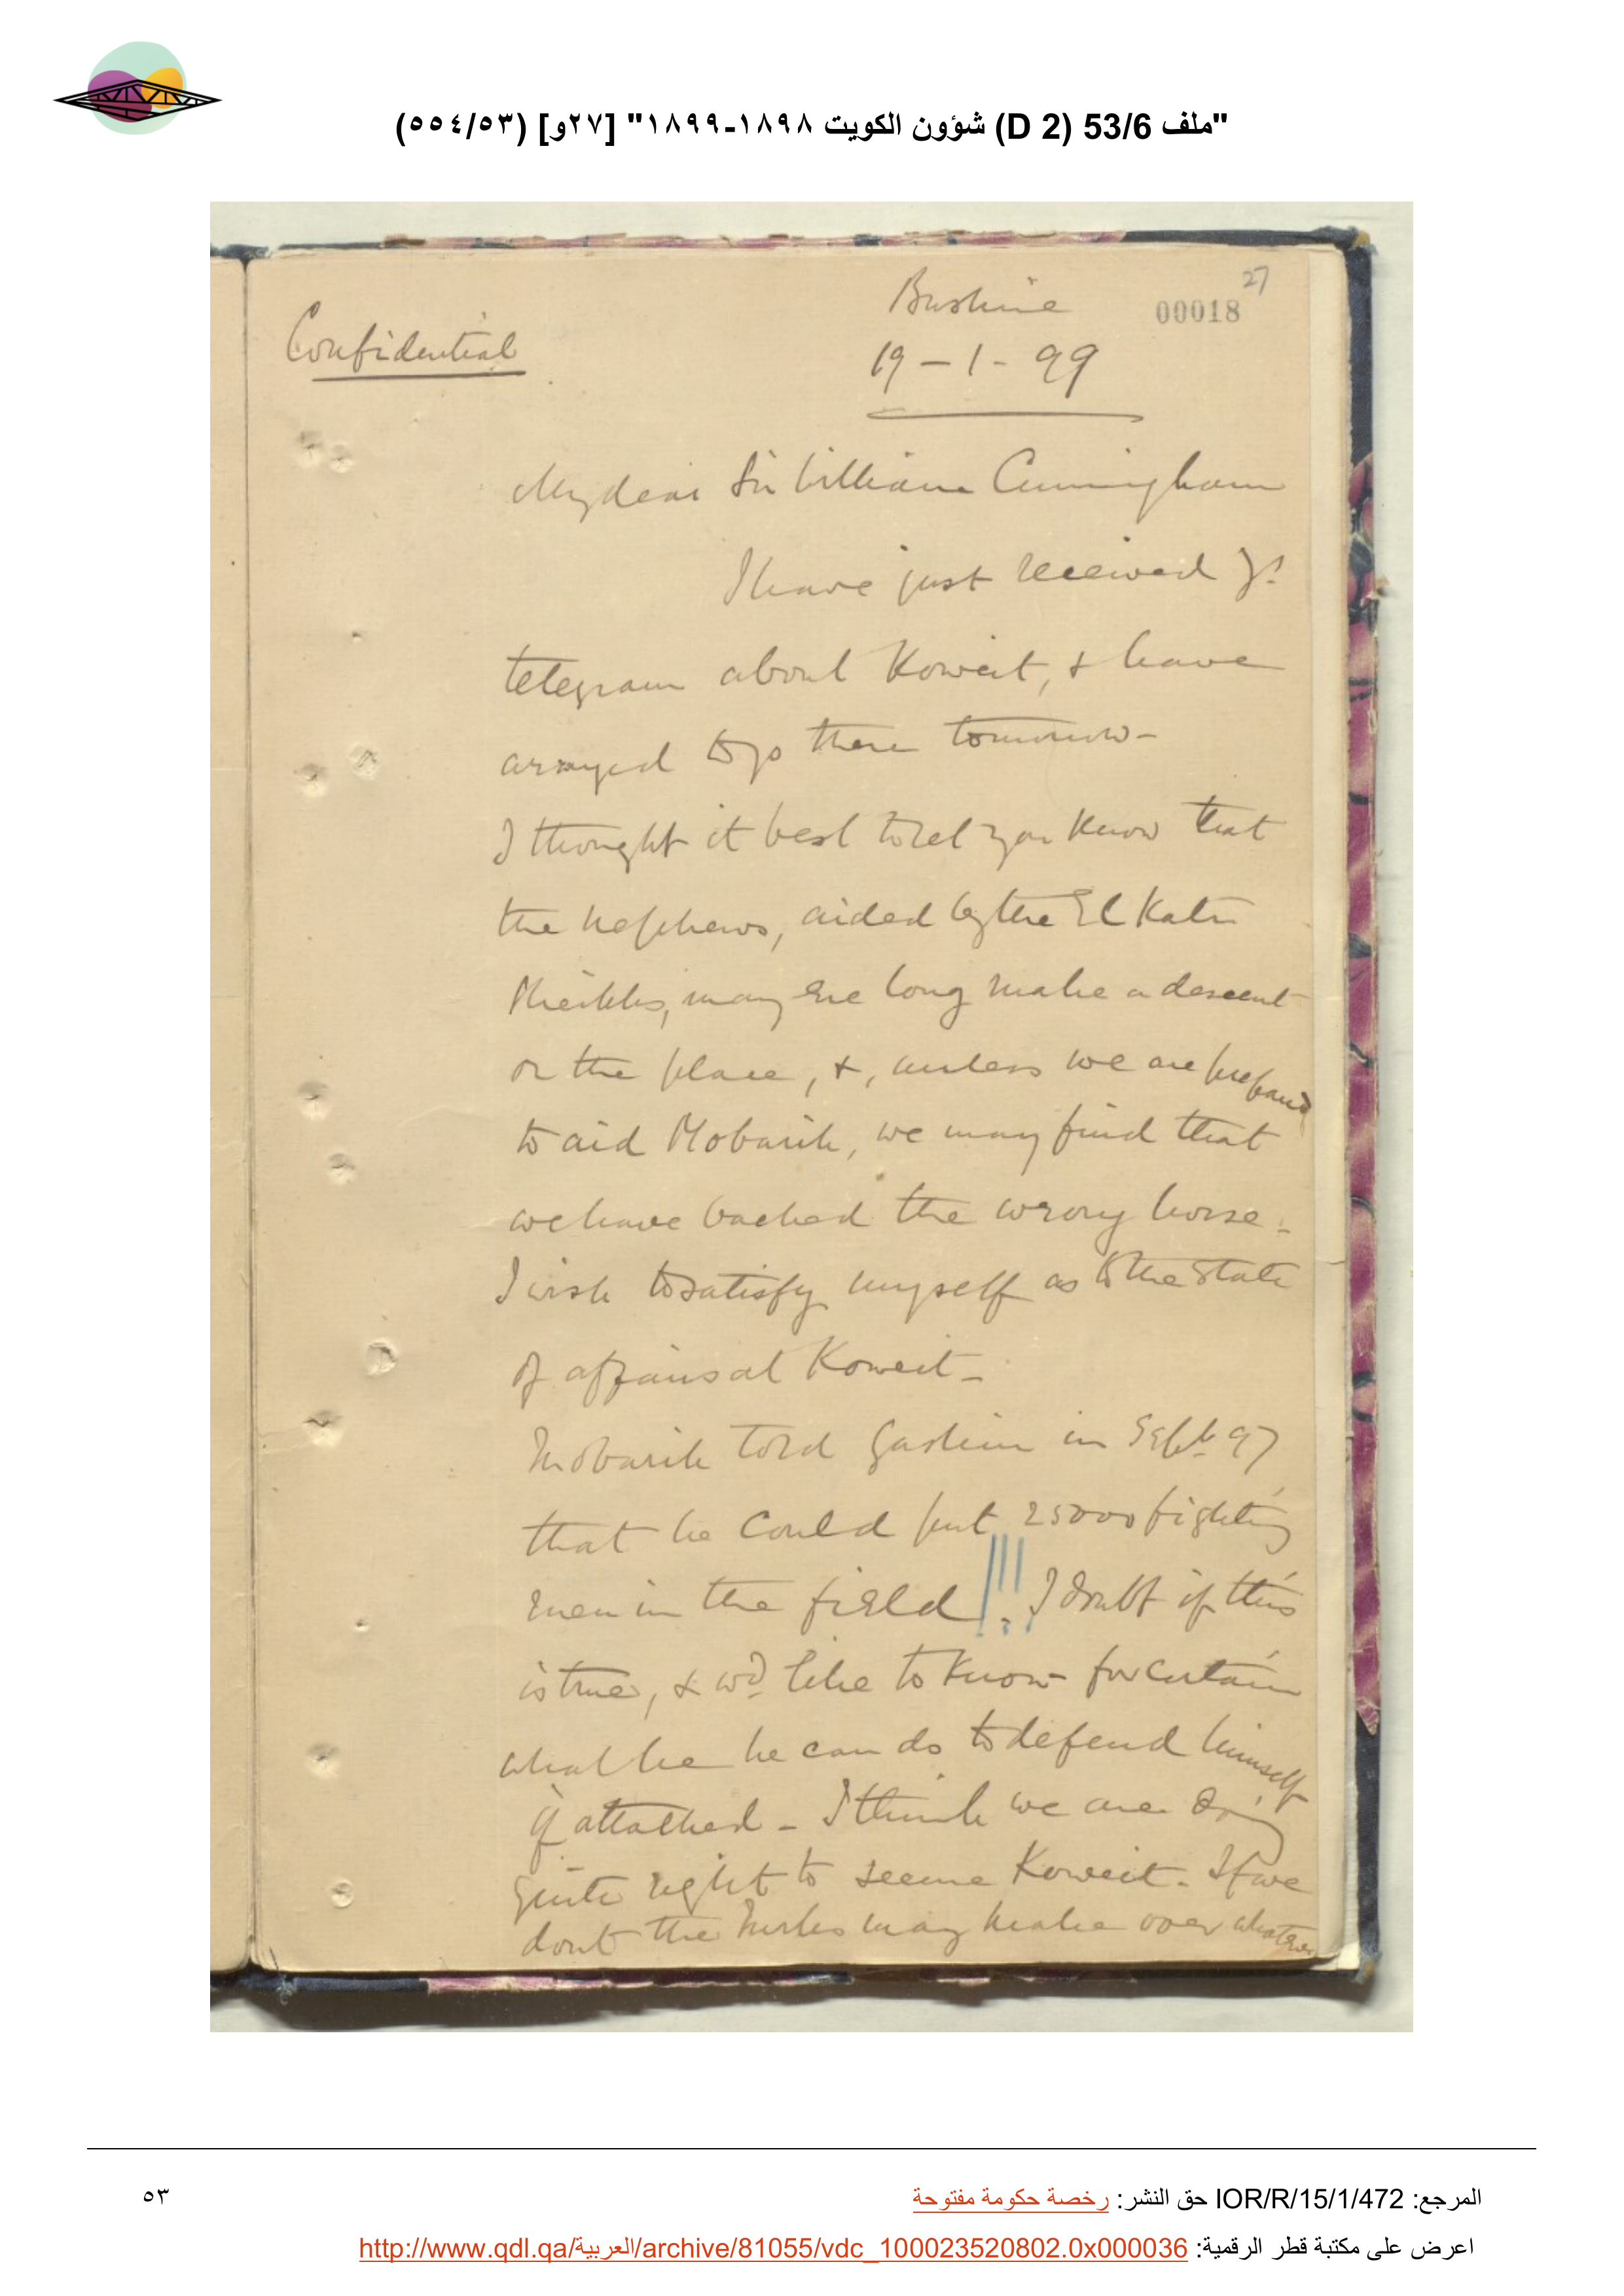 "ملف 53/6 (D 2) شؤون الكويت ١٨٩٨-١٨٩٩" [٢٧و] (٥٥٤/٥٣)
27
Bushire
00018
Confidential
19-1-99
My dear Sir William Cuningham
I have just received yr
telegram about Koweit, & have
arranged to go there tomorrow-
I thought it best to let you know that
the nephews, aided by the El Katr
Sheikhs, may ere long make a descent
on the place, &, unless we are prepared
to aid Mobarik, we may find that
we have backed the wrong horse-
I wish to satisfy myself as to the state
of affairs at Koweit-
Mobarik told Gaskin in Septr 97
that he could put 25000 fighting
men in the field!!! I doubt if this
is true, & wd like to know for certain
what he he can do to defend himself
if attacked- I think we are doing
quite right to secure Koweit- If we
dont the Turks may make over whatever
المرجع: IOR/R/15/1/472 حق النشر: رخصة حكومة مفتوحة
٥٣
اعرض على مكتبة قطر الرقمية: http://www.qdl.qa/العربية/archive/81055/vdc_100023520802.0x000036